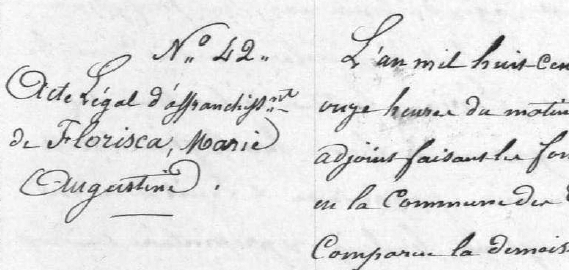 N.º 42.
Acte Légal d'affranchisst.
de Florisca, Marie
Augustine.
L'an mil huit cen
onze heures du matin
adjoint faisant les fon
en la Commune de
Comparue la demois